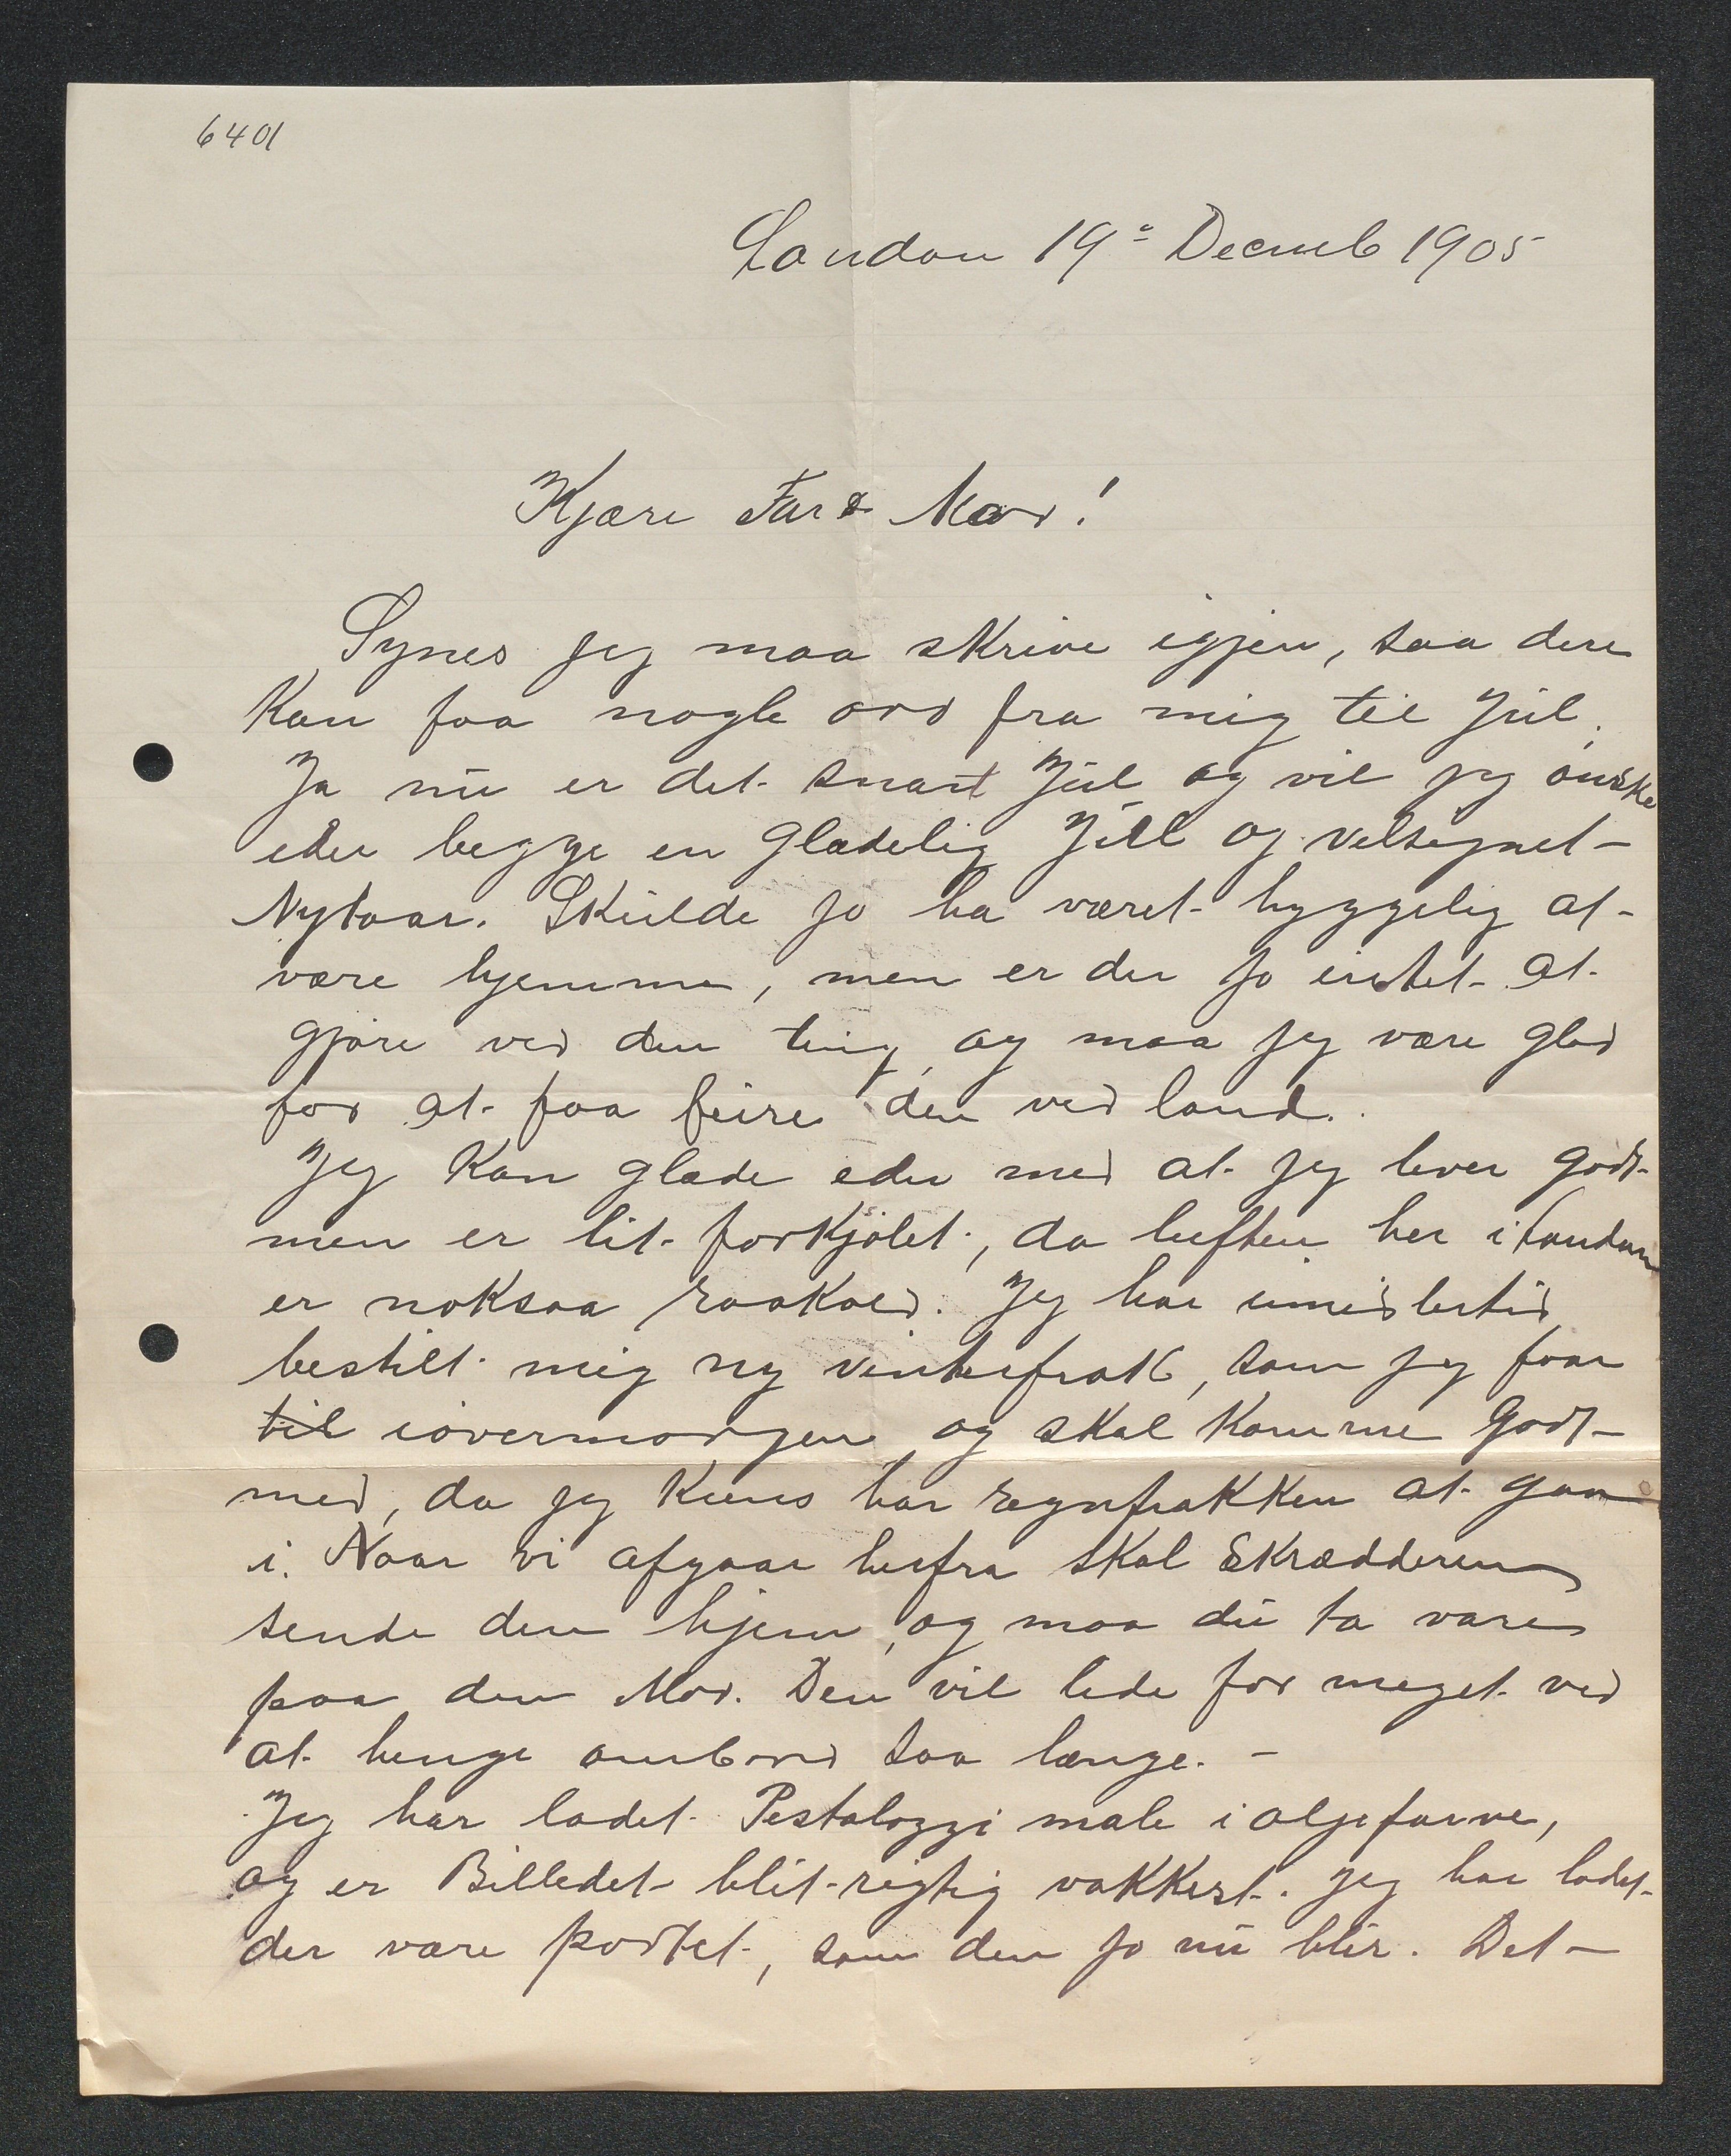 6401
London 19 Decemb 1905
Kjære Far & Mor!
Synes jeg maa skrive igjen, saa dere
kan faa nogle ord fra mig til Jul.
Ja nu er det snart Jul og vil jeg ønske
eder begge en Glædelig Jul og velsignet
Nytaar. Skulde jo ha været hyggelig at
være hjemme, men er der jo intet at
gjøre ved den ting, og maa jeg være glad
for at faa feire den ved land.
Jeg kan glæde eder med at jeg lever godt
men er lit forkjølet, da luften her i London
er noksaa raakold. Jeg har imidlertid
bestilt mig ny vinterfrak, som jeg faar
til iovermorgen og skal komme godt
med, da jeg kuns har regnfrakken at gaa
i. Naar vi afgaar herfra skal Skrædderen
sende den hjem, og maa du ta vare
paa den Mor. Den vil lide for meget ved
at henge ombord saa længe. -
Jeg har ladet Pestalozzi male i oljefarve,
og er Billedet blit rigtig vakkert. Jeg har ladet
der være portet, som den jo nu blir. Det